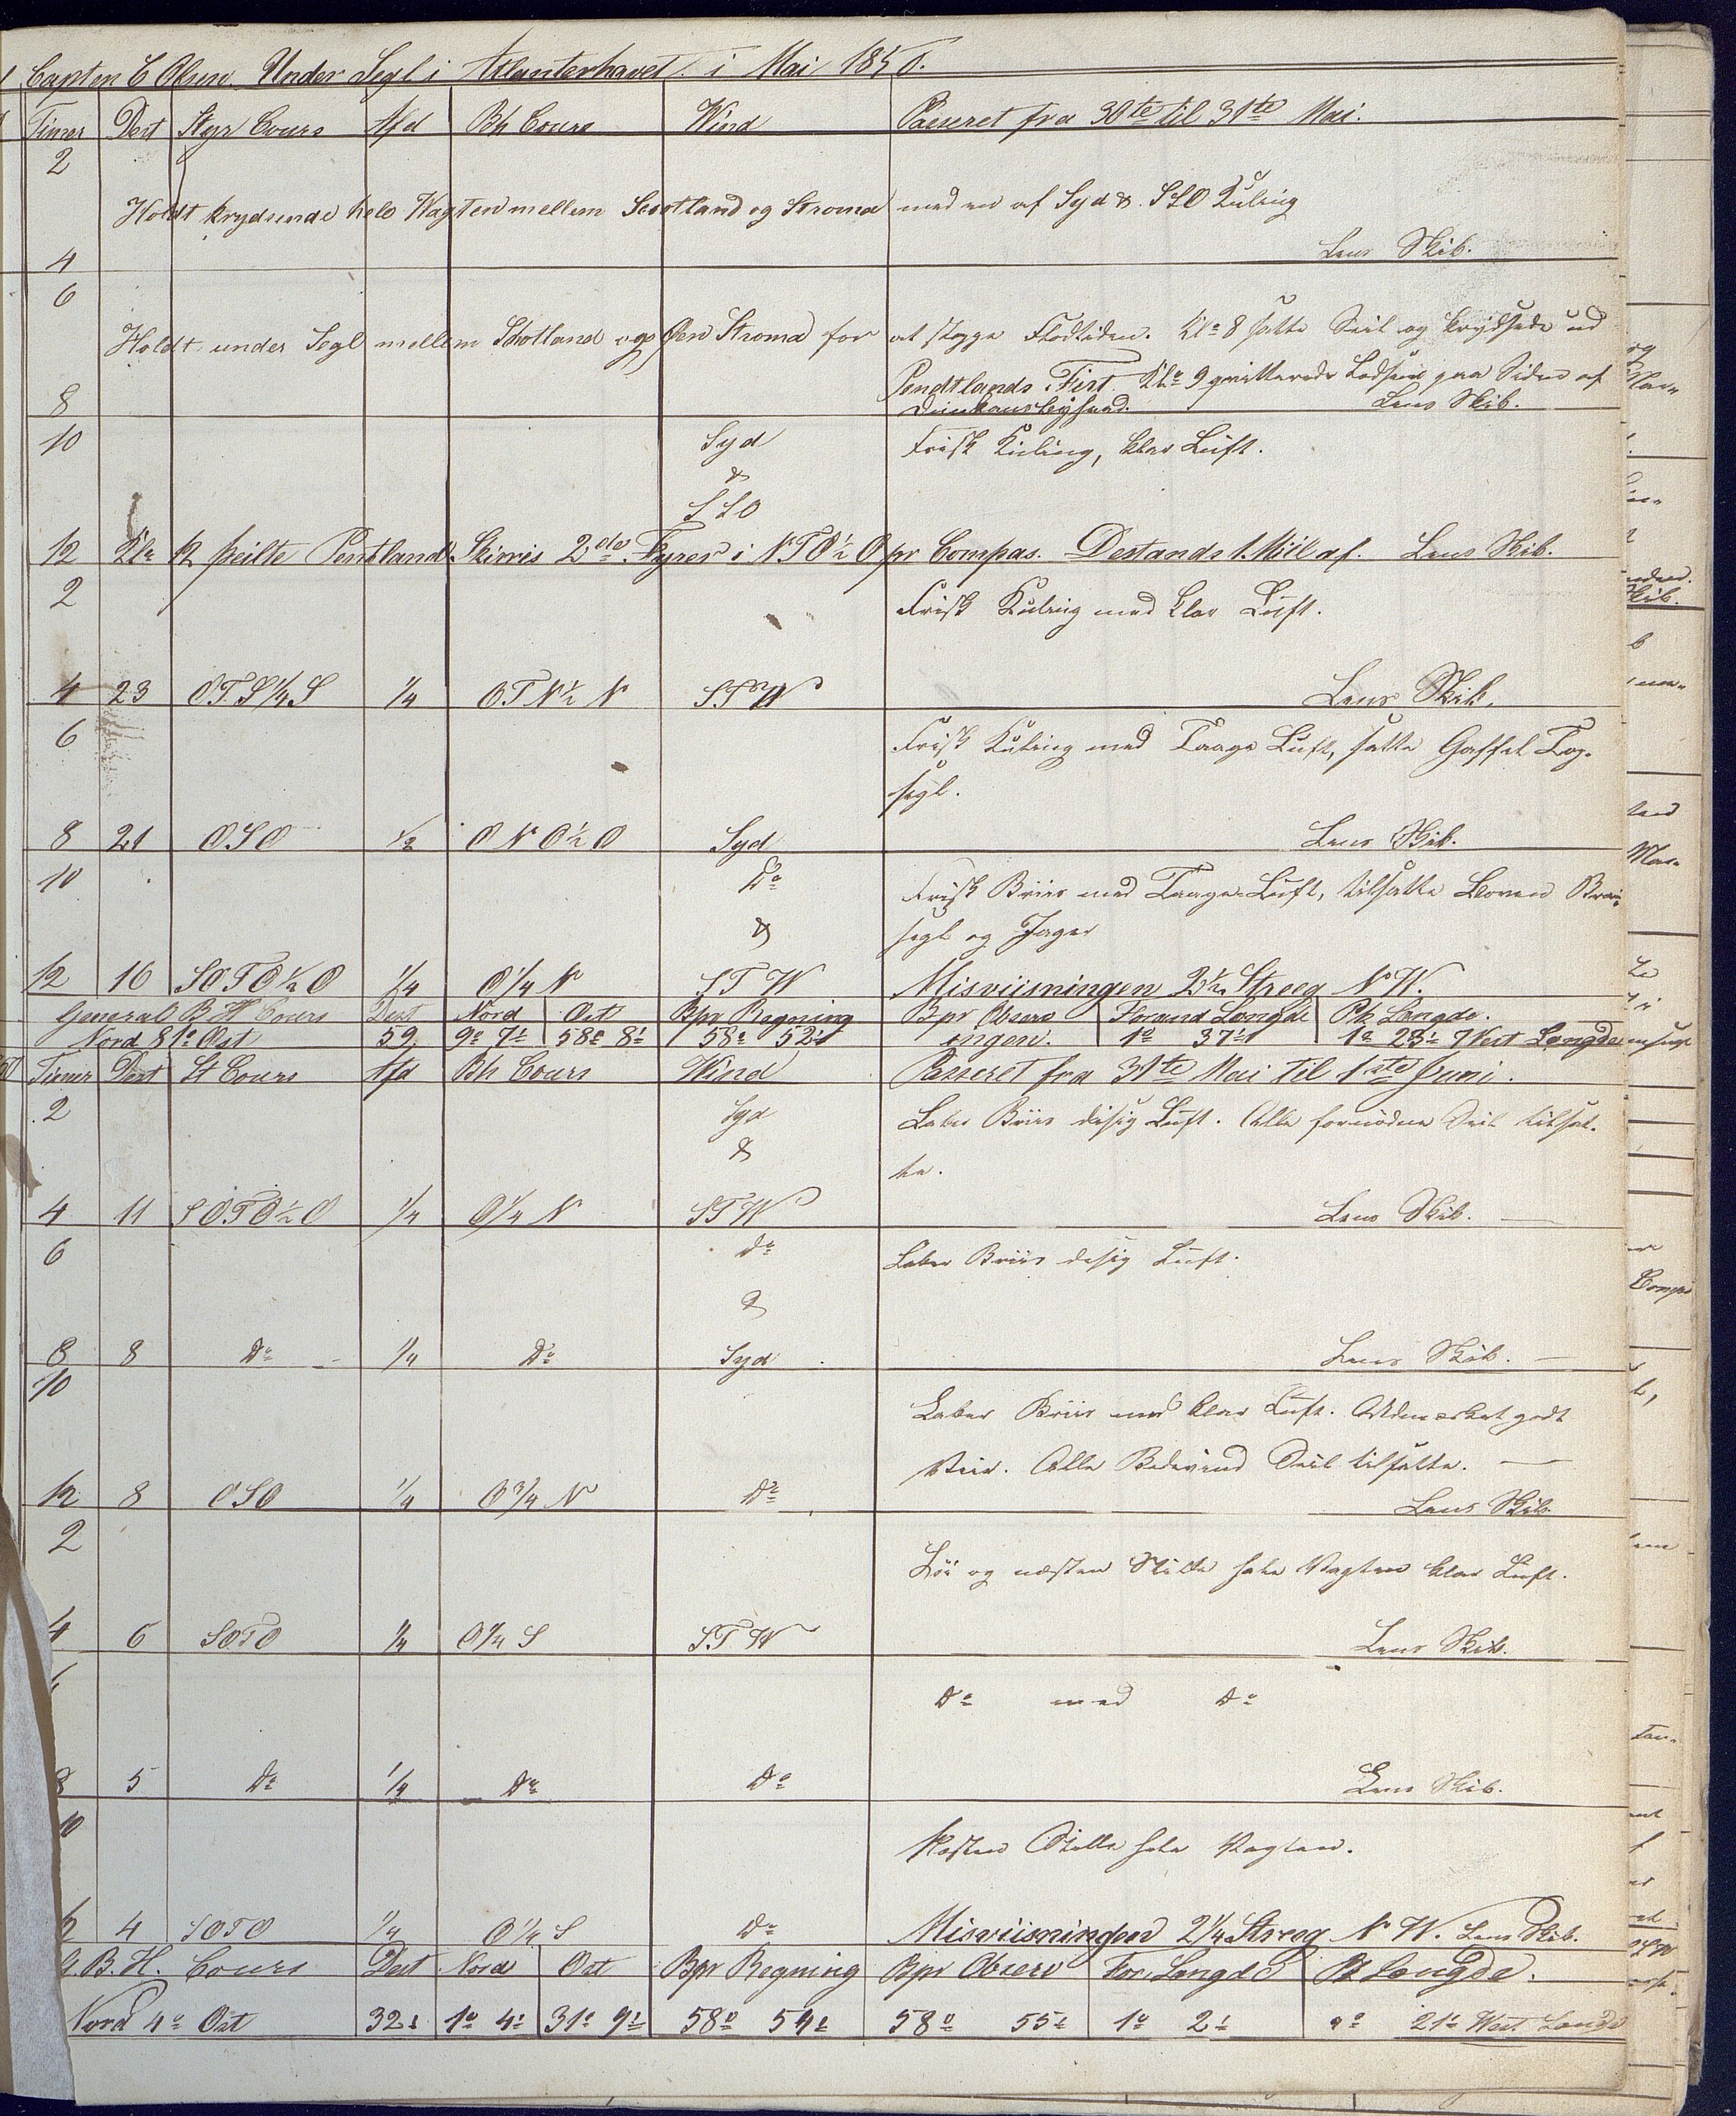 Capten C Olsen. Under Segl i Atlanterhavet. i Mai 1850.
Timer Dest Styr Cours Afd Bh Cours Wind Passeret fra 30te til 31te Mai.
2
Holdt krydsende hele Wagten mellem Scotland og Stroma med en af Syd & SSO Kuling
4 Lens Skib.
6
Holdt under Segl mellem Scotland og Øen Stroma for at stoppe Flodtiden. Kl= 8 satte Seil og krydsede ud
Pendtlands Firt. Kl= 9 qvitterede Lodsen paa Siden af
8 Lens Skib.
10 Syd Frisk Kuling, klar Luft.
&
SSO
12 Kl= 12 peilte Pentland Skirris 2de Fyrer i NTO½O pr Compas. Destande 1. Miil af. Lens Skib.
2 Frisk Kuling med klar Luft.
4 23 OTS¼S ¼ OTN½N STW Lens Skib.
6 Frisk Kuling med Taage Luft, satte Gaffel Top-
segl.
8 21 OSO ½ ONO½O Syd Lens Skib.
10 Do Frisk Briis med Taage Luft, tilsatte Boven Bram
& segl og Jager
12 16 SOTO½O ¼ O¼N STW Misviisningen 2½ Streeg NW.
General B H Cours Dest Nord Ost Bpr Regning Bpr Observ Forand Længde Ph Længde.
Nord 81° Ost 59 9= 7= 58= 8= 58= 52= ingen. 1= 37= 1= 23= West Længde
Timer Dest St Cours Afd Bh Cours Wind Passeret fra 31te Mai til 1ste Juni.
2 Syd Laber Briis disig Luft. Alle fornødne Seil tilsat-
& te.
4 11 SOTO½O ¼ O¼N STW Lens Skib.
6 Do Laber Briis disig Luft.
&
8 8 Do ¼ Do Syd Lens Skib.
10
Laber Briis med klar Luft. Udmærket godt
Veir. Alle Bidevind Seil tilsatte.
12 8 OSO ¼ O¾N Do Lens Skib
2
Løi og næsten Stille hele Vagten klar Luft.
4 6 SOTO ¼ O¼S STW Lens Skib.
Do med Do
8 5 Do ¼ Do Do Lens Skib.
10
Næsten Stille hele Vagten.
12 4 SOTO ¼ O¼S Do Misviisningen 2¼ Streeg NW. Lens Skib.
G.B.H. Cours Dest Nord Ost Bpr Regning Bpr Observ For. Længde P Længde.
Nord 4= Ost 32= 1= 4= 31= 9= 58= 54= 58= 55= 1= 2= 21= West Længde